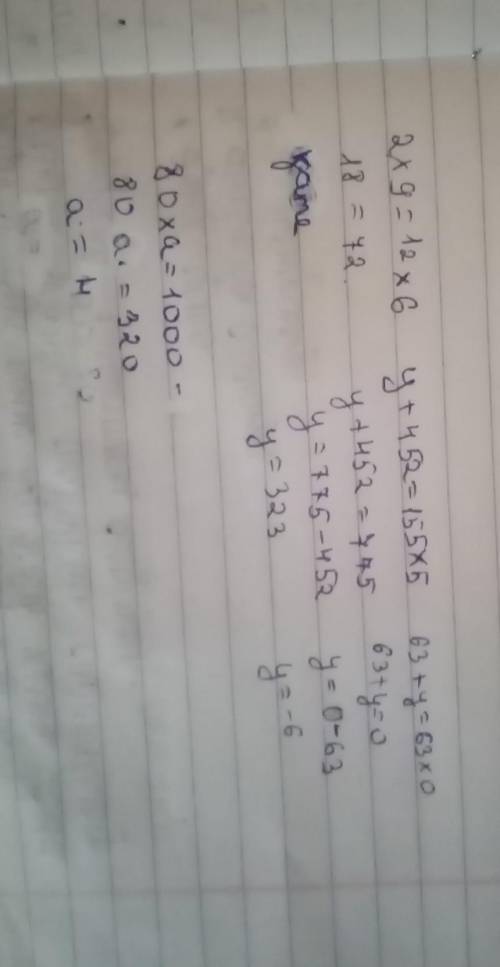 2 x 9 = 12 x 6
18 = 72
y + 452 = 155 x 5
y + 452 = 775
y = 775 - 452
y = 323
63 + y = 63 x 0
63 + y = 0
y = 0 - 63
y = -6
80 x a = 1000 -
80 a = 320
a = 4